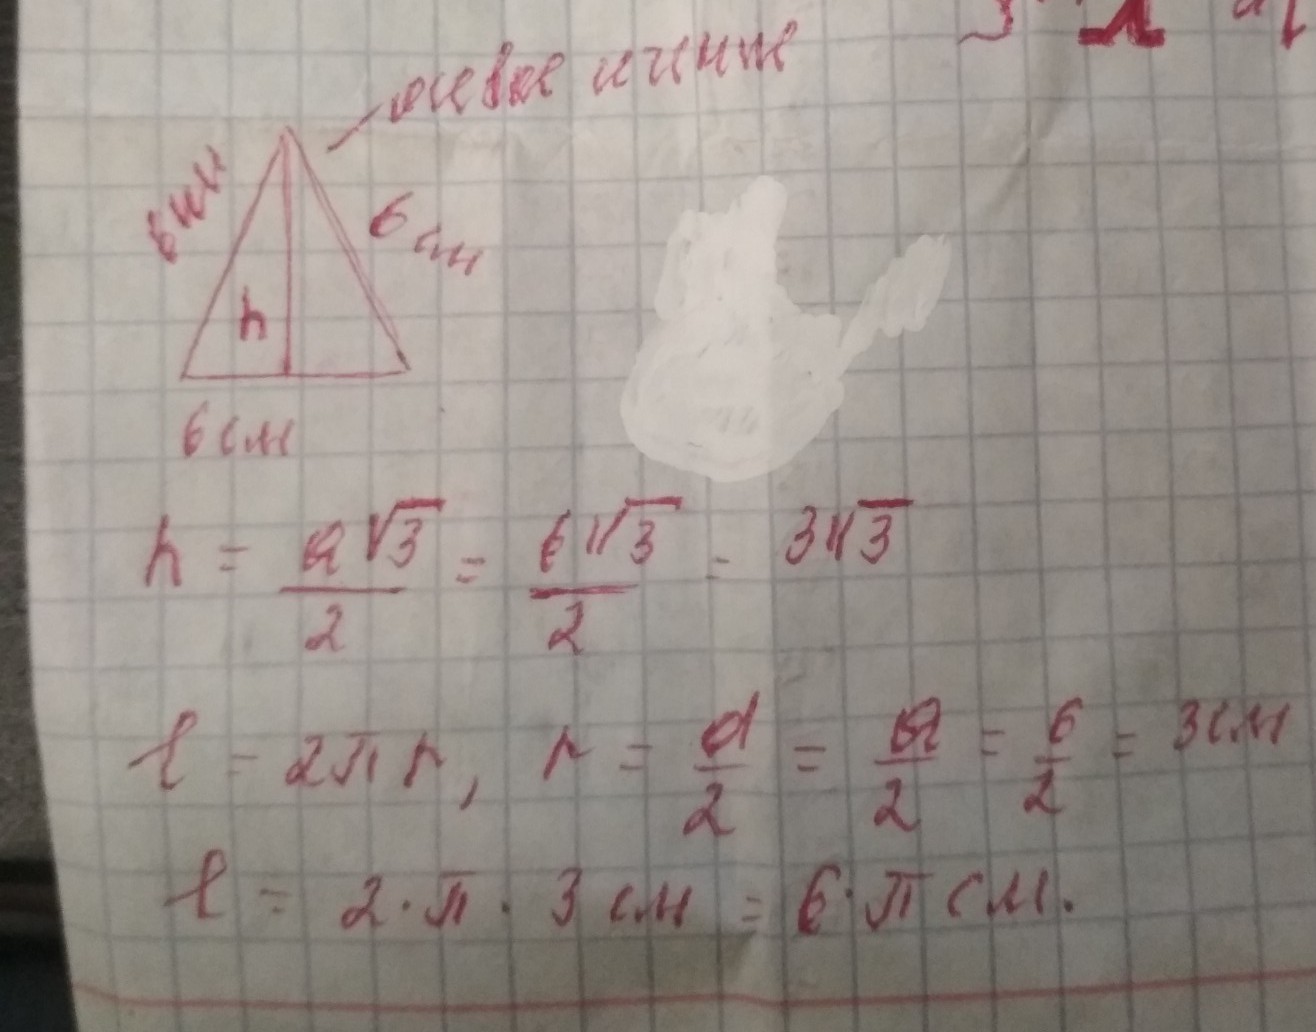 осевое сечение
6 см
6 см
h
6 см
h = a√3/2 = 6√3/2 = 3√3
l = 2πr, r = d/2 = a/2 = 6/2 = 3 см
l = 2·π·3 см = 6·π см.